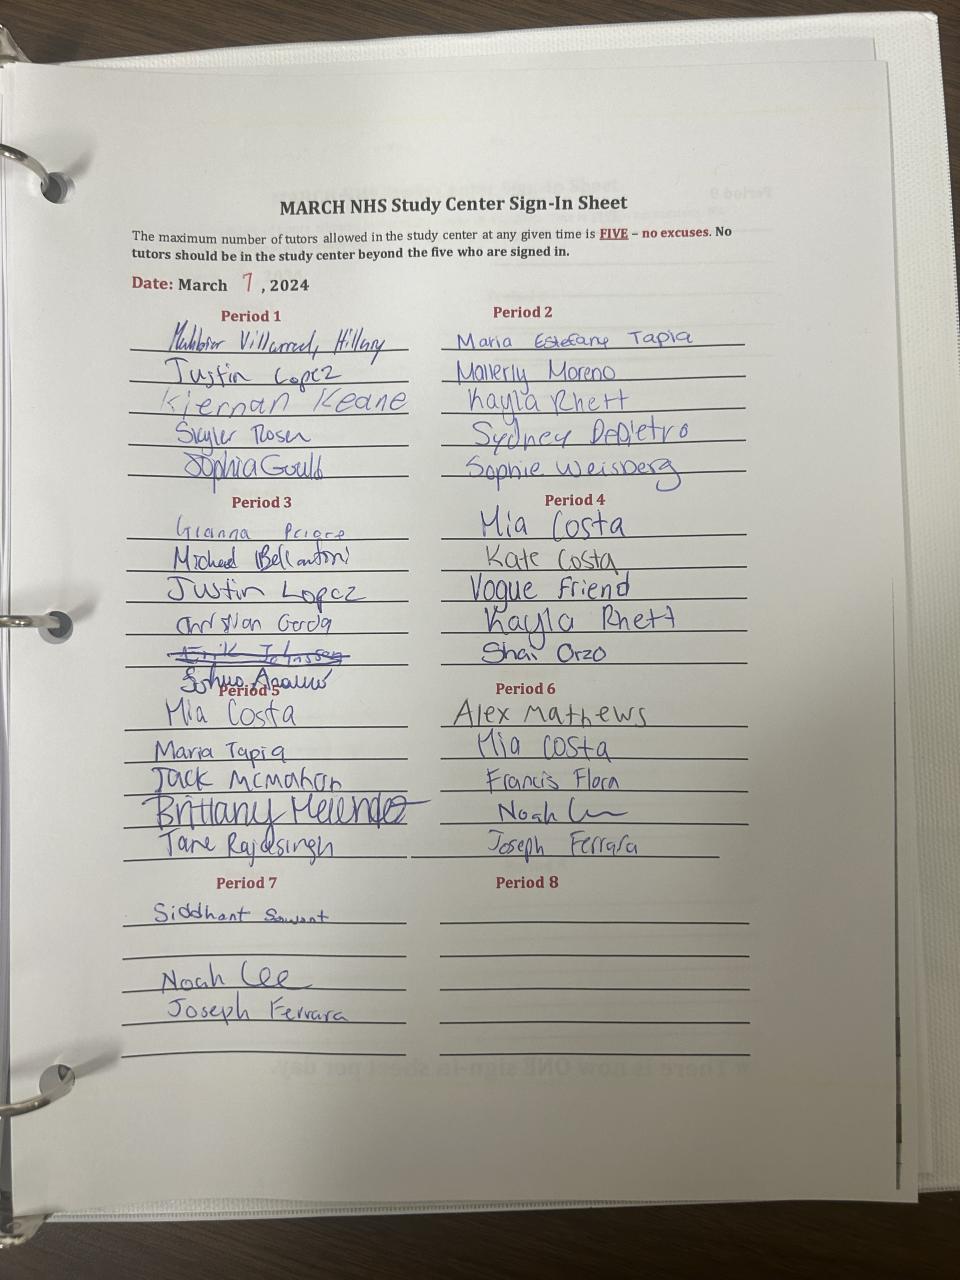 MARCH NHS Study Center Sign-In Sheet
The maximum number of tutors allowed in the study center at any given time is FIVE – no excuses. No
tutors should be in the study center beyond the five who are signed in.
Date: March 7, 2024
Period 1
Villarreal, Hillary
Justin Lopez
Kiernan Keane
Skyler Rosen
Sophia Gould
Period 2
Maria Estefany Tapia
Mallerly Moreno
Kayla Rhett
Sydney DePietro
Sophie Weisberg
Period 3
Gianna
Michael Bellantoni
Justin Lopez
Christian
Erik
Period 4
Mia Costa
Kate Costa
Vogue Friend
Kayla Rhett
Shai Orzo
Period 5
Mia Costa
Maria Tapia
Jack McMahon
Brittany Melendez
Jane Rajasingh
Period 6
Alex Mathews
Mia Costa
Francis Flora
Noah
Joseph Ferrara
Period 7
Siddhant Sawant
Noah Lee
Joseph Ferrara
Period 8